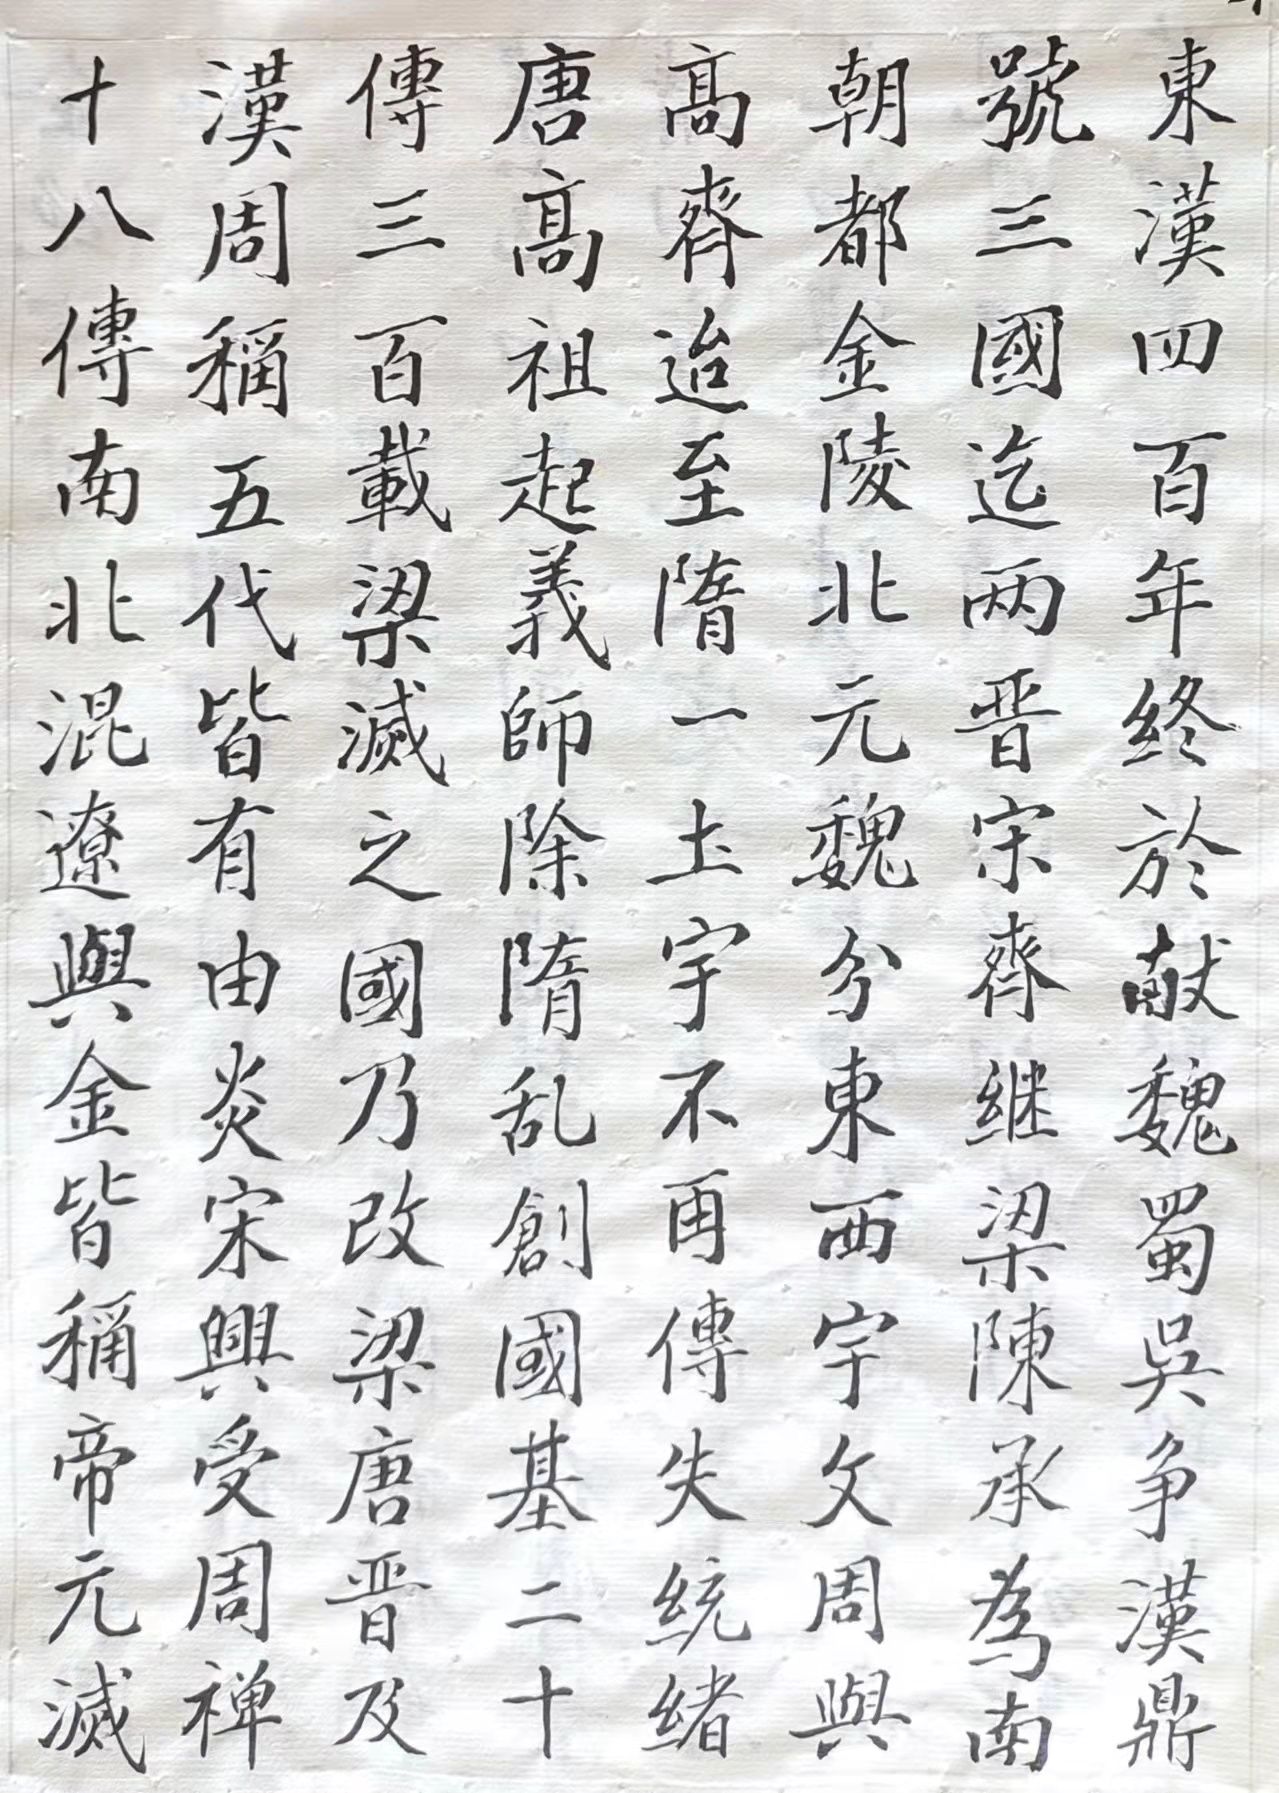 東漢四百年終於献魏蜀吳争漢鼎
號三國迄两晋宋齊継梁陳承為南
朝都金陵北元魏分東西宇文周與
高齊迨至隋一土宇不再傳失統緒
唐高祖起義師除隋乱創國基二十
傳三百載梁滅之國乃改梁唐晋及
漢周稱五代皆有由炎宋興受周禅
十八傳南北混遼與金皆稱帝元滅